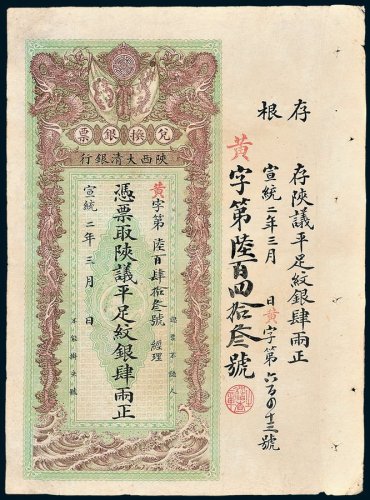 存根
存陝議平足紋銀肆兩正
宣統二年三月 日黃字第六百四十三號
黃字第陸百四拾叁號
兌換銀票
陝西大清銀行
黃字第陸百肆拾叁號 經理
憑票取陝議平足紋銀肆兩正
宣統二年三月 日
認票不認人
不能掛失號